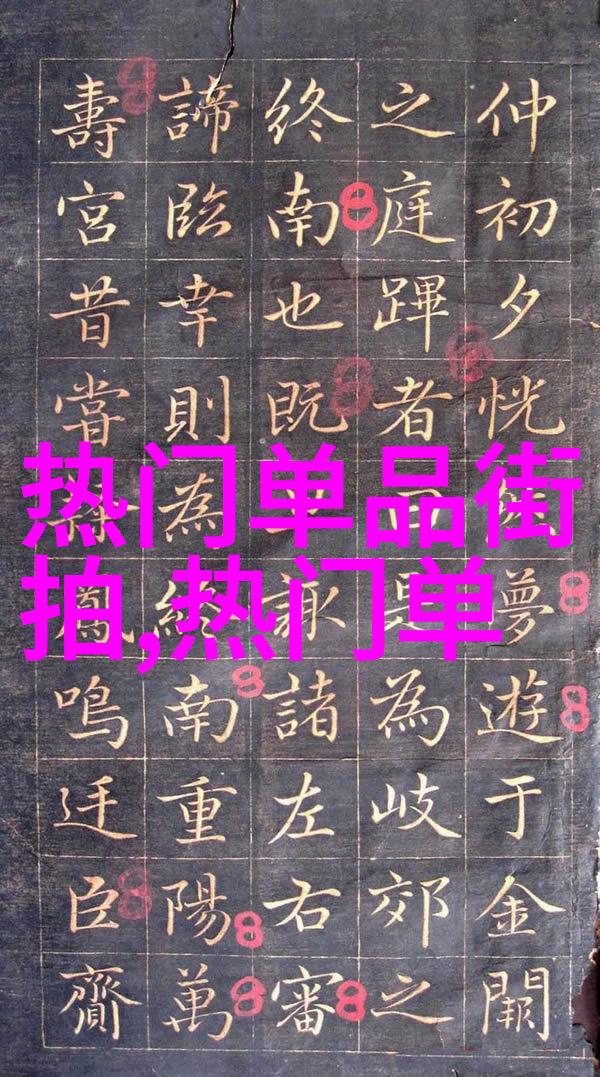 仲初夕恍夢遊于金闕
之庭蹕者曰為岐郊之
終南也既諏諸左右審
諦臨幸則為終南重陽萬
壽宮昔嘗鳳鳴迋臣齎
热门单品街
拍,热门单